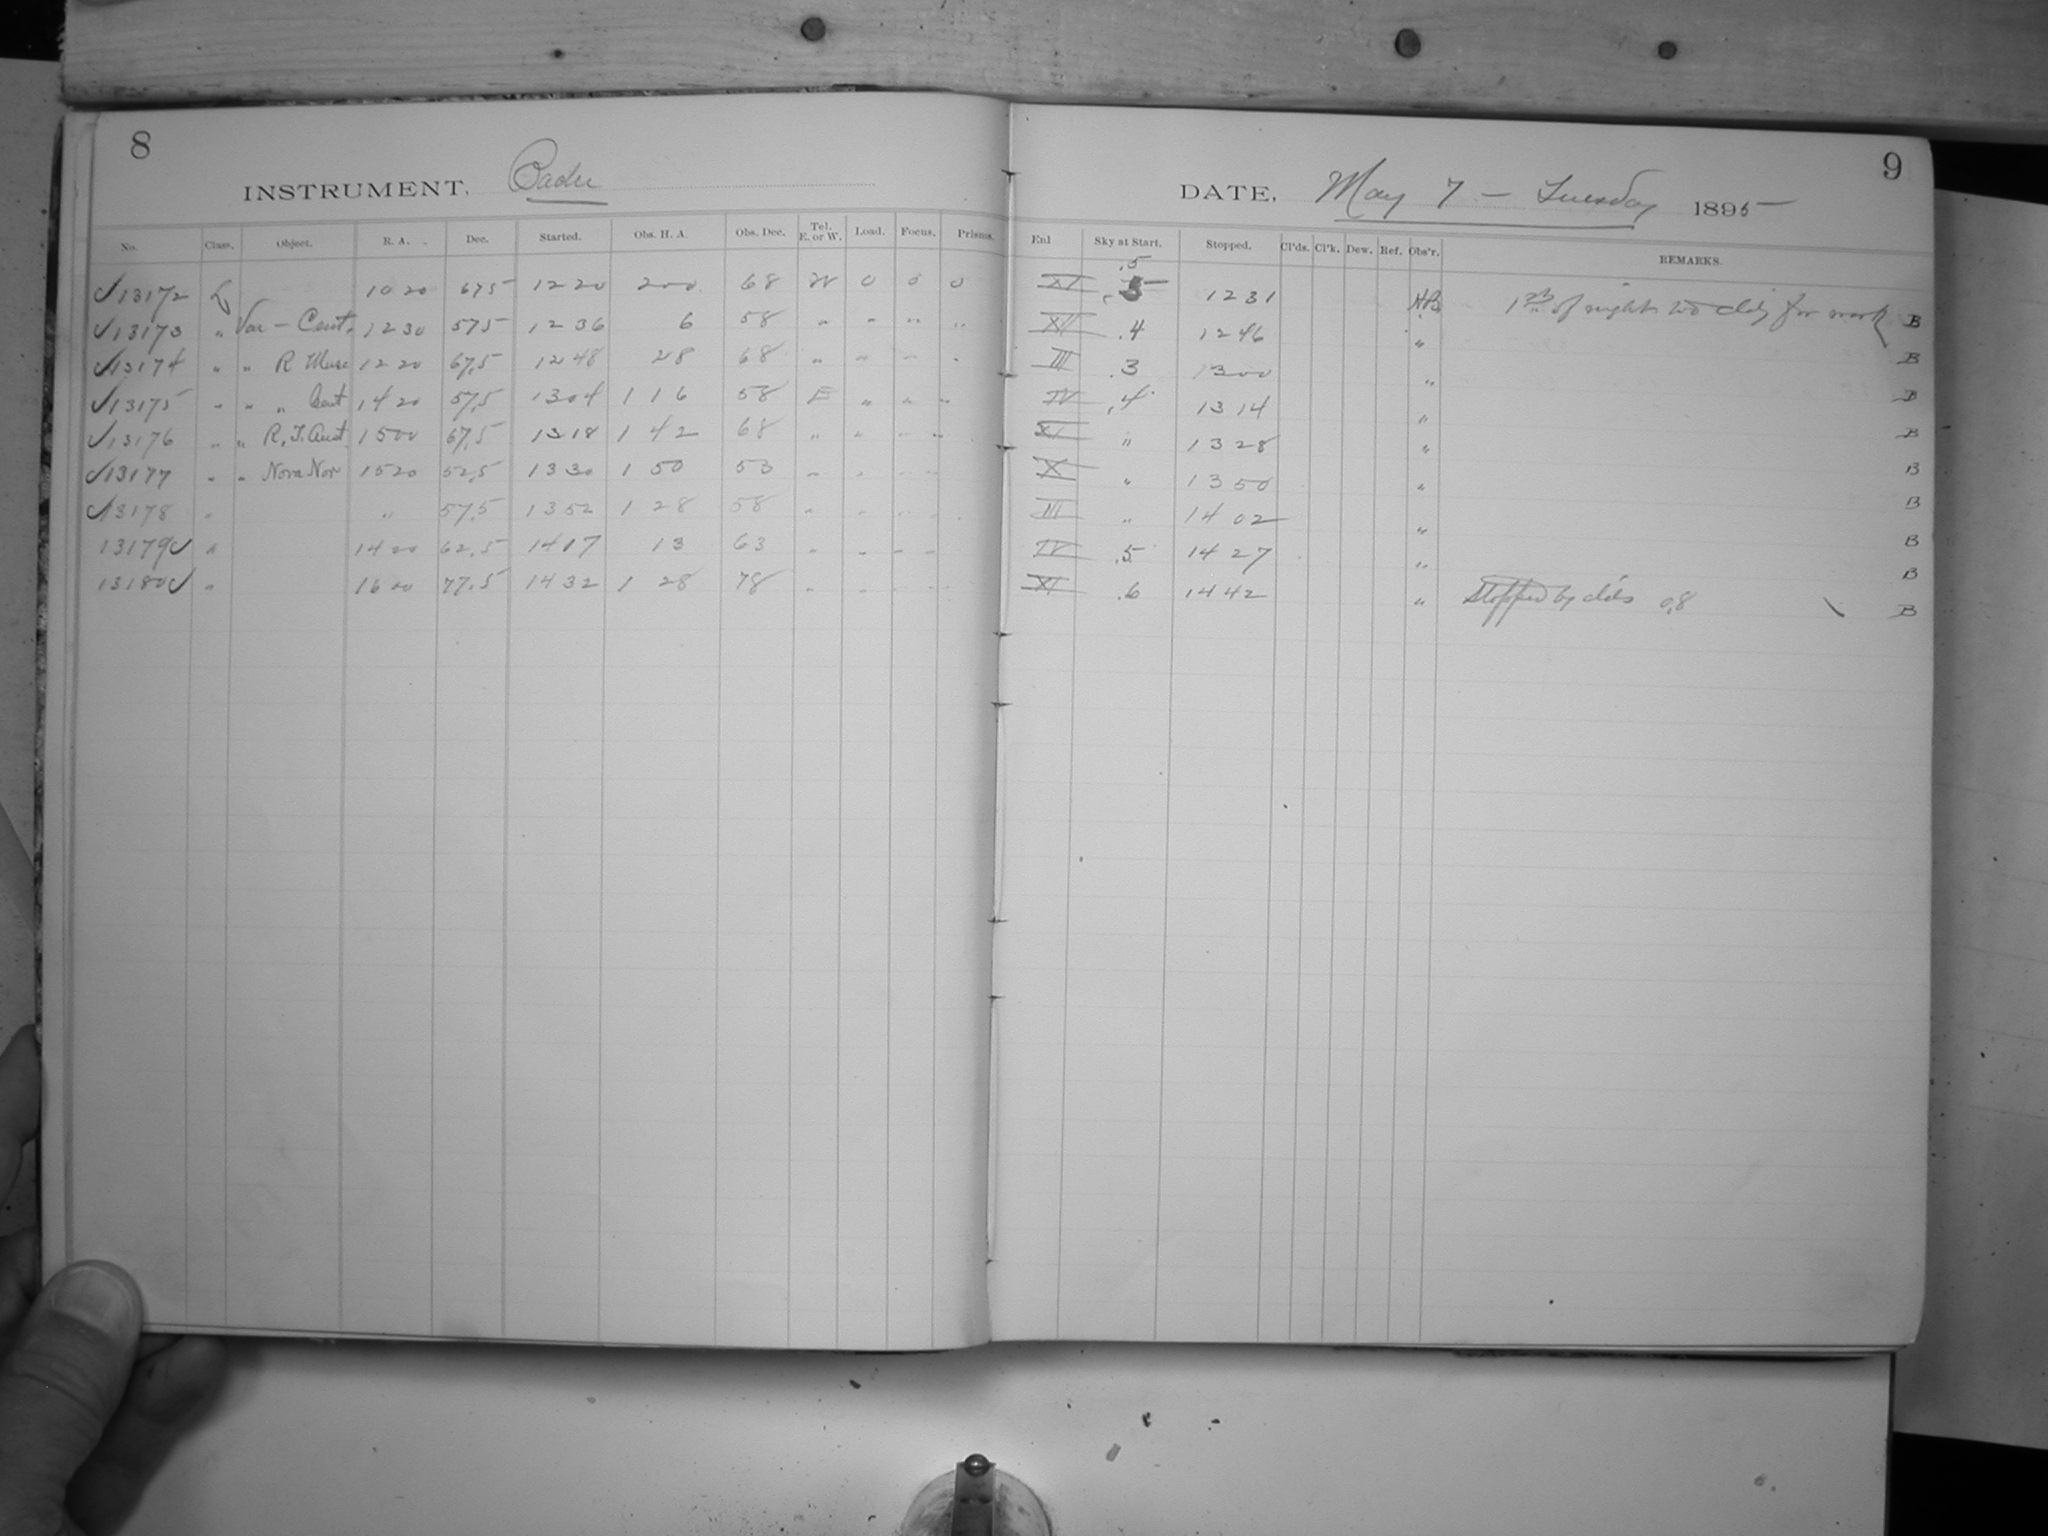 8
INSTRUMENT, Bache
No. Class. Object. R. A. Dec. Started. Obs. H. A. Obs. Dec. Tel. E. or W. Load. Focus. Prisms.
13172 L 10 20 67.5 12 20 2 00 68 W 0 0 0
13173 " Var - Cent. 12 30 57.5 12 36 6 58 " " " " "
13174 " " R Musc 12 20 67.5 12 48 28 68 " " " "
13175 " " " Cent 14 20 57.5 13 04 1 16 58 E " " "
13176 " " R. T. Aust. 15 00 67.5 13 18 1 42 68 " " " "
13177 " " Nova Nor 15 20 52.5 13 30 1 50 53 " " " "
13178 " " 57.5 13 52 1 28 58 " " " "
13179 " 14 20 62.5 14 17 13 63 " " " "
13180 " 16 00 77.5 14 32 1 28 78 " " " "
9
DATE, May 7 - Tuesday 1895
Enl Sky at Start. Stopped. Cl'ds. Cl'k. Dew. Ref. Obs'r. REMARKS.
XI .5 12 31 1st of night too cldy for work B
XII .4 12 46 " B
III .3 13 00 " B
IV .4 13 14 " B
XI " 13 28 " B
X " 13 50 " B
III " 14 02 " B
IV .5 14 27 " B
XI .6 14 42 " Stopped by clds 0.8 B